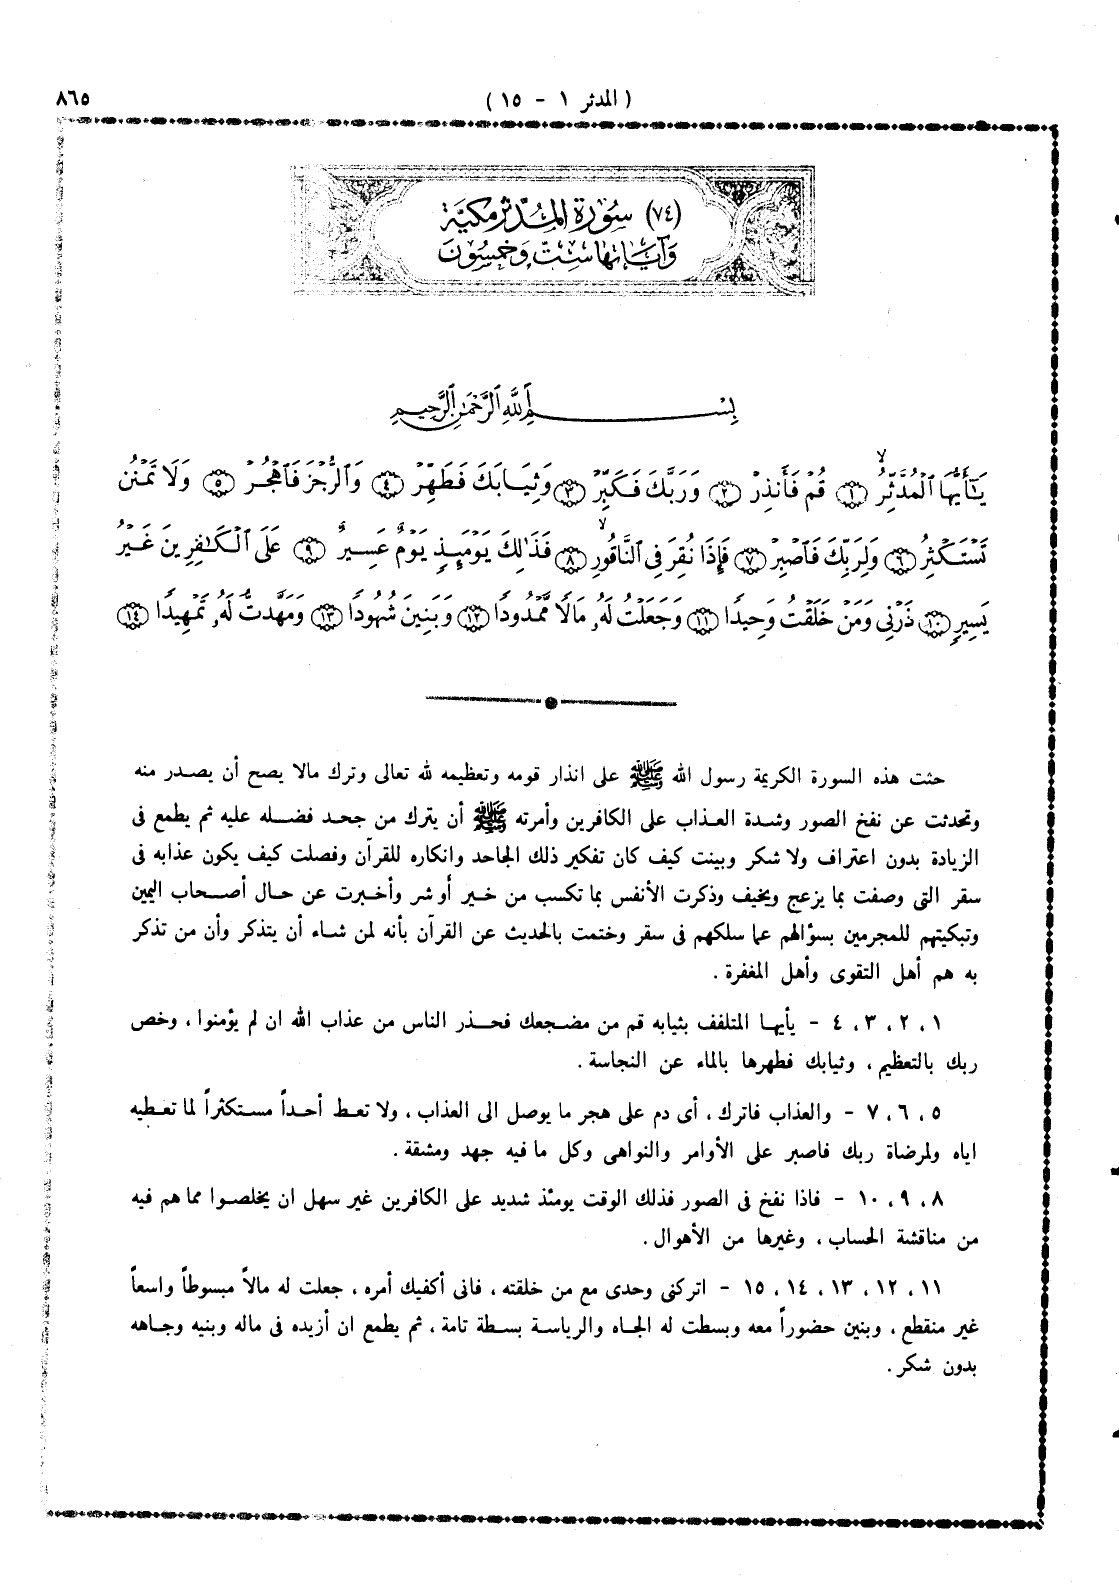 ٨٦٥
( المدثر ١ - ١٥ )
(٧٤) سُورَة المُدَّثِّر مكيَّة
وَآيَاتهَا سِتٌّ وَخَمسُون
بِسْمِ ٱللَّهِ ٱلرَّحْمَٰنِ ٱلرَّحِيمِ
يَٰٓأَيُّهَا ٱلْمُدَّثِّرُ ۙ ١ قُمْ فَأَنذِرْ ٢ وَرَبَّكَ فَكَبِّرْ ٣ وَثِيَابَكَ فَطَهِّرْ ٤ وَٱلرُّجْزَ فَٱهْجُرْ ٥ وَلَا تَمْنُن
تَسْتَكْثِرُ ٦ وَلِرَبِّكَ فَٱصْبِرْ ٧ فَإِذَا نُقِرَ فِى ٱلنَّاقُورِ ۙ ٨ فَذَٰلِكَ يَوْمَئِذٍ يَوْمٌ عَسِيرٌ ٩ عَلَى ٱلْكَٰفِرِينَ غَيْرُ
يَسِيرٍ ١٠ ذَرْنِى وَمَنْ خَلَقْتُ وَحِيدًا ١١ وَجَعَلْتُ لَهُۥ مَالًا مَّمْدُودًا ١٢ وَبَنِينَ شُهُودًا ١٣ وَمَهَّدتُّ لَهُۥ تَمْهِيدًا ١٤
حثت هذه السورة الكريمة رسول الله ﷺ على انذار قومه وتعظيمه لله تعالى وترك مالا يصح أن يصدر منه
وتحدثت عن نفخ الصور وشدة العذاب على الكافرين وأمرته ﷺ أن يترك من جحد فضله عليه ثم يطمع فى
الزيادة بدون اعتراف ولا شكر وبينت كيف كان تفكير ذلك الجاحد وانكاره للقرآن وفصلت كيف يكون عذابه فى
سقر التى وصفت بما يزعج ويخيف وذكرت الأنفس بما تكسب من خير أو شر وأخبرت عن حال أصحاب اليمين
وتبكيتهم للمجرمين بسؤالهم عما سلكهم فى سقر وختمت بالحديث عن القرآن بأنه لمن شاء أن يتذكر وأن من تذكر
به هم أهل التقوى وأهل المغفرة .
١ ، ٢ ، ٣ ، ٤ - يأيها المتلفف بثيابه قم من مضجعك فحذر الناس من عذاب الله ان لم يؤمنوا ، وخص
ربك بالتعظيم ، وثيابك فطهرها بالماء عن النجاسة .
٥ ، ٦ ، ٧ - والعذاب فاترك ، أى دم على هجر ما يوصل الى العذاب ، ولا تعط أحداً مستكثراً لما تعطيه
اياه ولمرضاة ربك فاصبر على الأوامر والنواهى وكل ما فيه جهد ومشقة .
٨ ، ٩ ، ١٠ - فاذا نفخ فى الصور فذلك الوقت يومئذ شديد على الكافرين غير سهل ان يخلصوا مما هم فيه
من مناقشة الحساب ، وغيرها من الأهوال .
١١ ، ١٢ ، ١٣ ، ١٤ ، ١٥ - اتركنى وحدى مع من خلقته ، فانى أكفيك أمره ، جعلت له مالاً مبسوطاً واسعاً
غير منقطع ، وبنين حضوراً معه وبسطت له الجاه والرياسة بسطة تامة ، ثم يطمع ان أزيده فى ماله وبنيه وجاهه
بدون شكر .